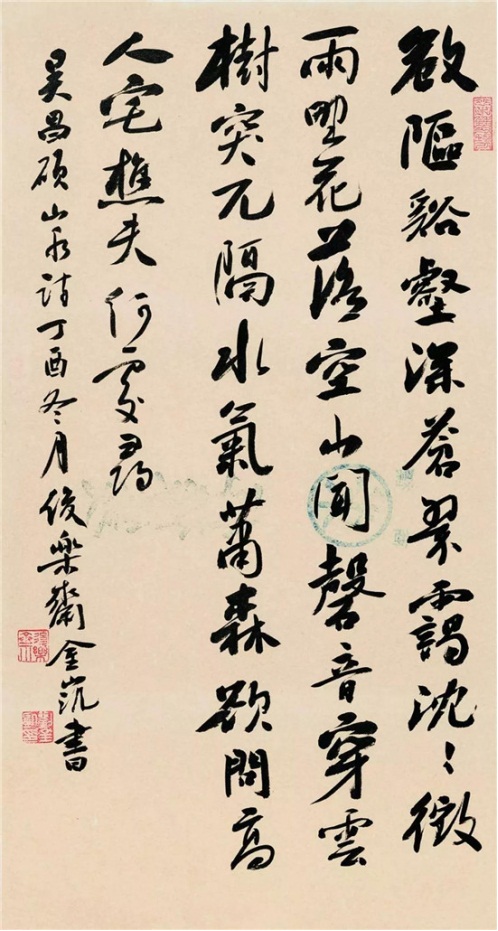 敧䧢谿壑深蒼翠靄沈沈微
雨野花落空山聞磬音穿雲
樹突兀隔水氣蕭森欲問高
人宅樵夫何處尋
吴昌碩山水詩丁酉冬月後樂齋金書